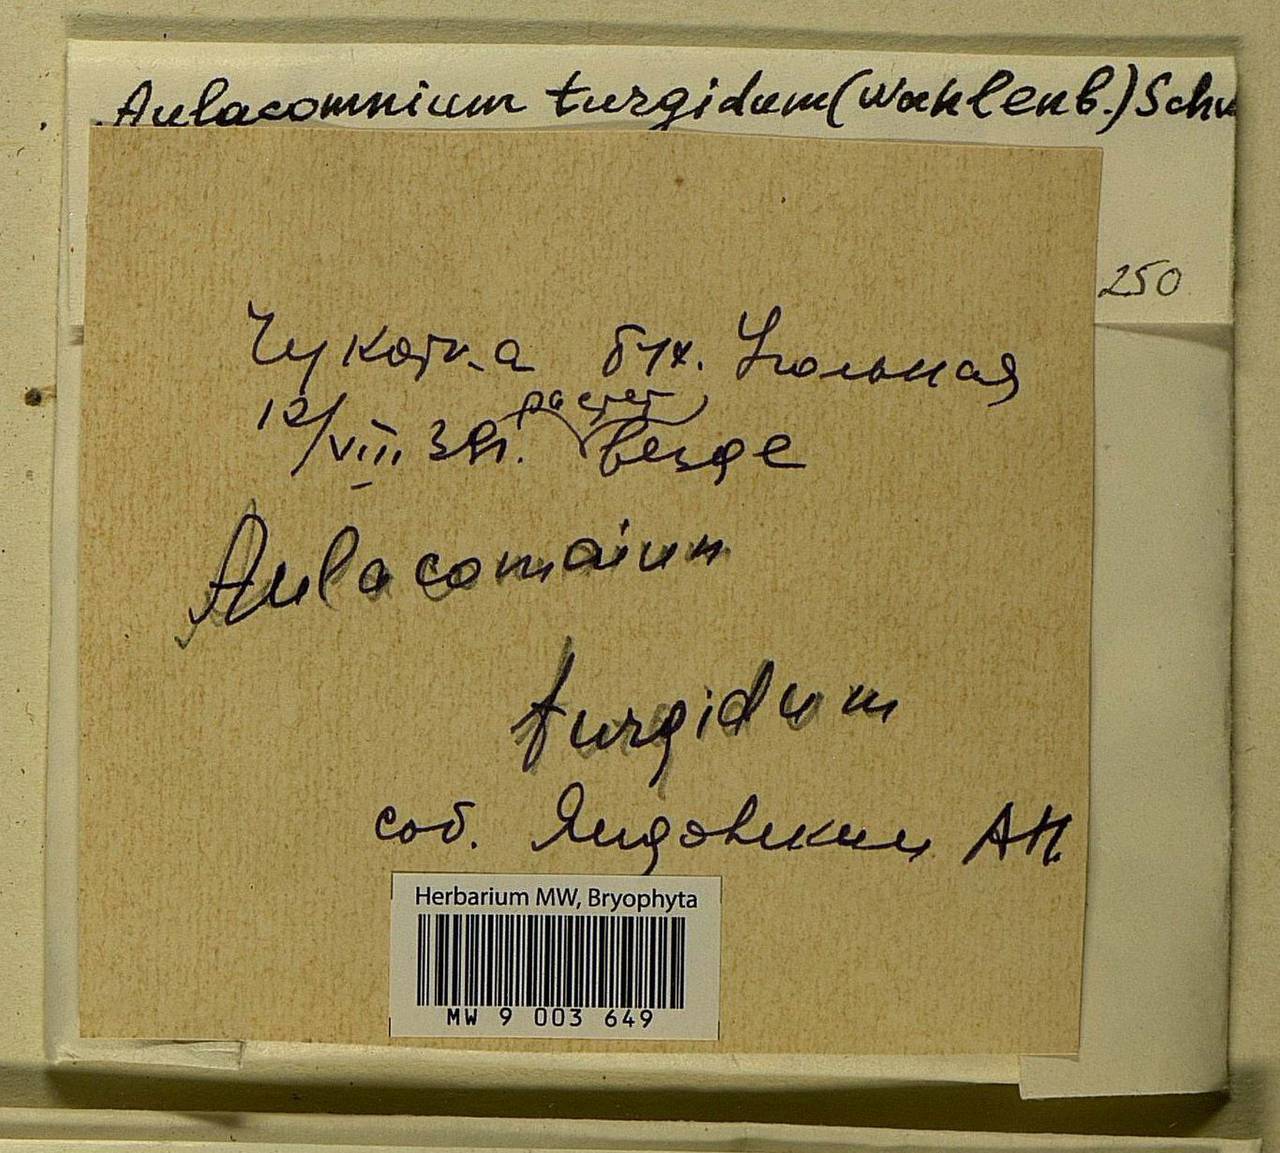 Aulacomnium turgidum (Wahlenb.) Schw
250
Чукотка бух. Угольная
растет
12/VIII везде
Aulacomnium
turgidum
соб. Яндовский АН.
Herbarium MW, Bryophyta
MW 9 003 649